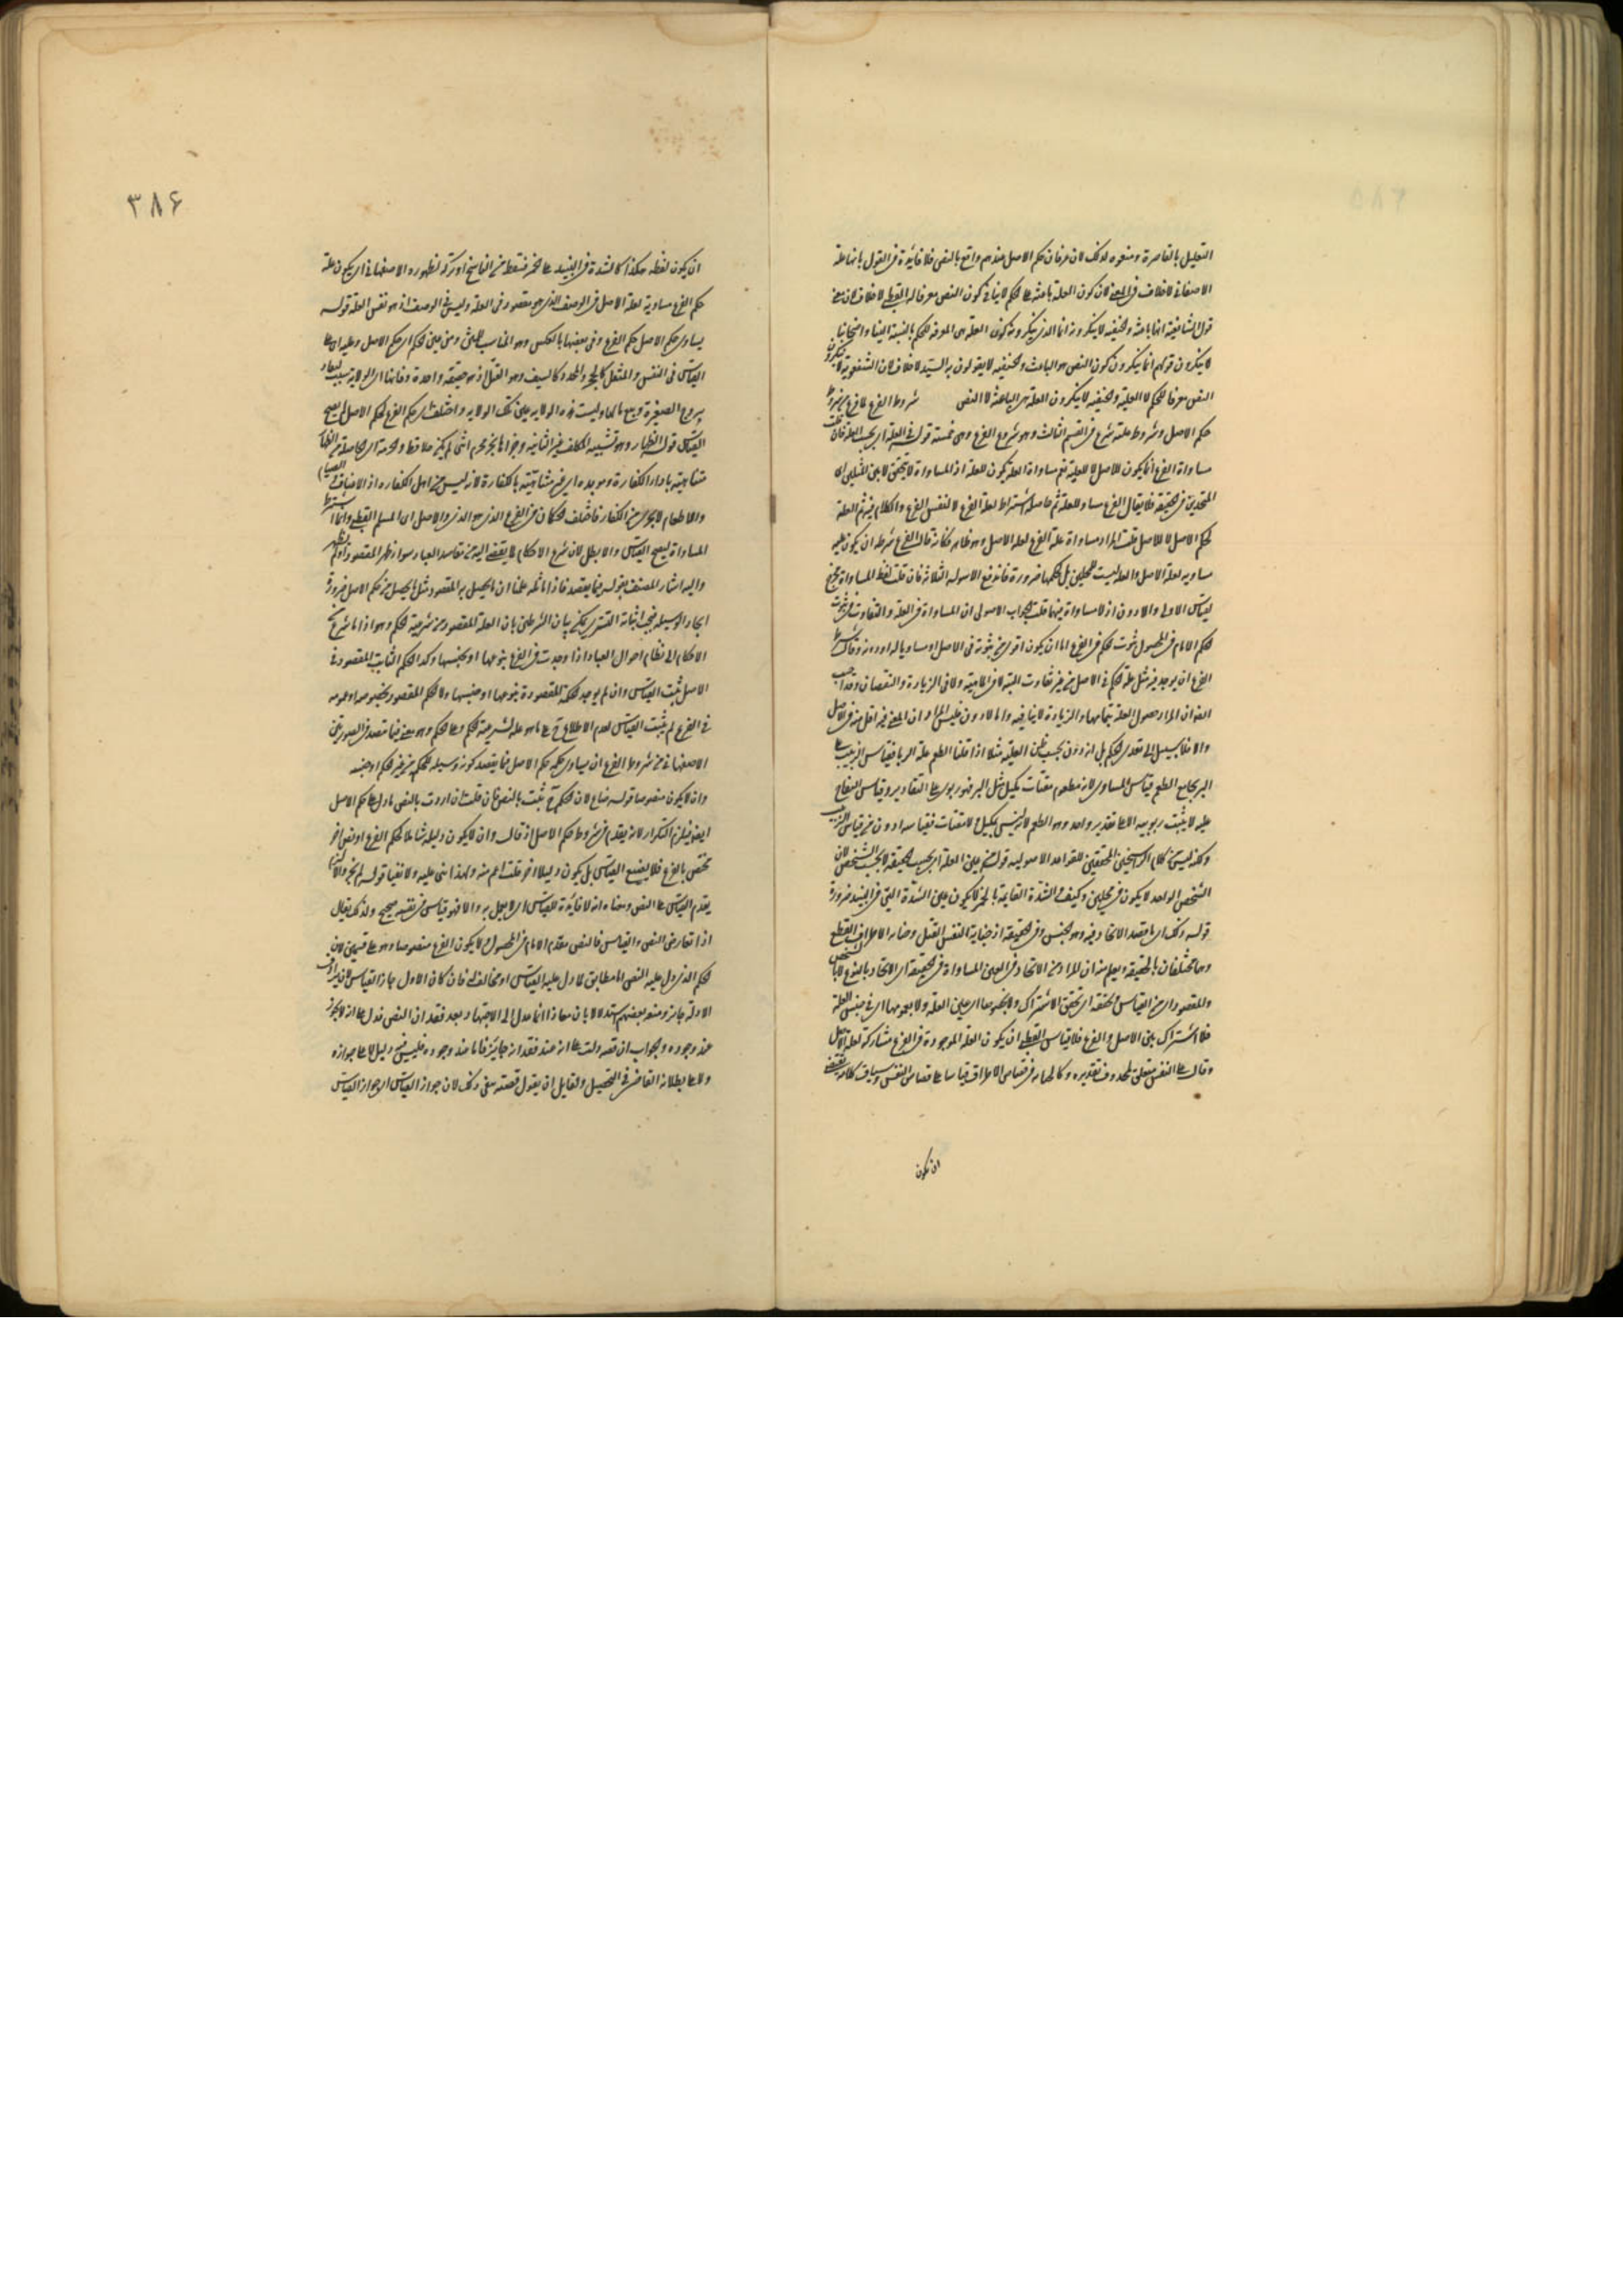 التعليل بالقاصرة ومنعوه لذلك لان عرفان حكم الاصل عندهم واقع بالنص فلا فائدة في القول بانها علة
الاصفهاني لا خلاف في المعنى لان كون العلة باعثة على الحكم لا ينافي كون النص معرفا له القطبي لا خلاف لان معنى
قول الشافعية انها باعثة والحنفية لا ينكرونه انما الذي ينكرونه كون العلة هي المعرفة للحكم بالنسبة الينا واصحابنا
لا ينكرون قولهم انما ينكرون كون النص هو الباعث والحنفية لا يقولون به السيد لا خلاف لان الشفعوية لا ينكرون
النص معرفا للحكم لا العلة والحنفية لا ينكرون العلة هي الباعثة لا النص شروط الفرع لما فرغ من شروط
حكم الاصل وشروط علته شرع في القسم الثالث وهو شروع الفرع وهي خمسة قوله في العلة اي بحسب
مساواة الفرع انما يكون للاصل لا للعلة نعم مساواة العلة يكون للعلة اذ المساواة لا تتحقق الا بين المثلين اي
المتحدين في الحقيقة فلا يقال الفرع مساو للعلة ثم حاصله اشتراط لعلة الفرع لا لنفس الفرع والكلام فيه ثم العلة
لحكم الاصل لا للاصل قلت المراد مساواة علة الفرع لعلة الاصل وهو ظاهر فكانه قال الفرع شرطه ان يكون علته
مساوية لعلة الاصل والعلة ليست للمحلين بل لحكمهما ضرورة فاندفع الاسولة الثلاثة فان قلت لفظ المساواة مخرج
لقياس الاولى والادون اذ لا مساواة فيهما قلت الجواب الاصولي ان المساواة في العلة والتفاوت في ثبوت
الحكم الامام في المحصول ثبوت الحكم في الفرع اما ان يكون اقوى من ثبوته في الاصل او مساويا له او دونه وقال شرط
الفرع ان يوجد فيه مثل علة الحكم في الاصل من غير تفاوت البتة لا في الماهية ولا في الزيادة والنقصان
ان المراد حصول العلة بتمامها والزيادة لا ينافيه واما الادون فليس المراد ان المعنى فيه اقل منه في الاصل
والا فلا سبيل الى تعدي الحكم بل انه دون بحسب ظن العلية مثلا اذا قلنا الطعم علة الربا فقياس الزبيب على
البر بجامع الطعم قياس المساوي لانه مطعوم مقتات مكيل مثل البر فهو ربوي على التقادير وقياس التفاح
عليه لا يثبت ربويته الا على تقدير واحد وهو الطعم لانه ليس بمكيل ولا مقتات فقياسه ادون من قياس الزبيب
قوله من عين العلة اي بحسب الحقيقة لا بحسب الشخص لان
الشخص الواحد لا يكون في محلين وكيف والشدة القايمة بالخمر لا يكون عين الشدة التي في النبيذ ضرورة
قوله وذلك اي ما قصد الاتحاد فيه وهو الجنس وفي الحقيقة اذ جناية النفس القتل وجناية الاطراف القطع
وهما مختلفان بالحقيقة ويعلم منه ان المراد من الاتحاد في العين المساواة في الحقيقة اي الاتحاد بالنوع لا بالشخص
والمقصود اي من القياس اي تحقق الاشتراك ولا بخصوصها اي عين العلة ولا بعمومها اي في جنس العلة
فلا اشتراك بين الاصل والفرع فلا قياس القطبي ان يكون العلة الموجودة في الفرع مشاركة لعلة الاصل
وقال على النفس متعلق بمحذوف تقديره وكالجناية في قصاص الاطراف قياسا على قصاص النفس وسياق كلامه يقتضي
ان يكون
٣٨٤
ان يكون لفظه هكذا كالشدة في النبيذ على الخمر فسقط من الناسخ او تركه لظهوره الاصفهاني اي يكون علة
حكم الفرع مساوية لعلة الاصل في الوصف الذي هو مقصود في العلة وليس في الوصف اذ هو نفس العلة قوله
يساوي حكم الاصل حكم الفرع وفي بعضها بالعكس وهو المناسب للمتن ومن عين الحكم اي حكم الاصل وعليه اي على
القياس في النفس والمثقل كالحجر والمحدد كالسيف وهو القتل اذ هو حقيقة واحدة وفانها اي الولاية سبب لنفاذ
بزوج الصغيرة وبيع مالها وليست هذه الولاية عين تلك الولاية واختلف اي حكم الفرع لحكم الاصل لم يصح
القياس قوله الظهار وهو تشبيه المكلف غير البائنة وجزءها بجزء محرم انثى لم يكن حلالا قط والحرمة اي الحاصلة من الظهار
متناهية باداء الكفارة ومؤبدة اي غير متناهية بالكفارة لانه ليس من اهل الكفارة اذ الاعتاق والصيام
والاطعام لا يجزي من الكفار فاختلف الحكمان في الفرع الذمي والاصل اي المسلم القطبي وانما اشترط
المساواة ليصح القياس والا بطل لان شرع الاحكام لما يقتضي اليه من مقاصد العباد سواء ظهر المقصود او لم يظهر
واليه اشار المصنف بقوله فيما يقصد فاذا ماثله علمنا ان ما يحصل به المقصود مثل ما يحصل من حكم الاصل ضرورة
اتحاد الوسيلة فيجب اثباته التستري يمكن بيان الشرطين بان العلة المقصود من شرعية الحكم وهو اذ انما شرع
الاحكام الى نظام احوال العباد اذا وجدت في الفرع بنوعها او بجنسها وكذا الحكم الثابت المقصود في
الاصل ثبت القياس وان لم يوجد الحكمة المقصودة بنوعها او جنسها ولا الحكم المقصود بخصوصه او عمومه
في الفرع لم يثبت القياس لعدم الاطلاع ح على ما هو علة لشرعية الحكم وعلى الحكم وهو معنى فيما قصد في الصورتين
الاصفهاني من شروط الفرع ان يساوي حكمه حكم الاصل فيما يقصد كونه وسيلة للحكمة من عين الحكم او جنسه
وان لا يكون منصوصا قوله ضايع لان الحكم ح ثبت بالنص فان قلت ان اردت بالنص ما دل على حكم الاصل
ايضا فيلزم التكرار لانه يقدم في شروط حكم الاصل اذ قال وان لا يكون دليله شاملا لحكم الفرع او نص اخر
مختص بالفرع فلا يضيع القياس بل يكون دليلا اخر قلت اعم منه ولهذا نفى عليه ولا نفيا قوله لم يجز والا
يقدم القياس على النص ومعناه انه لا فائدة للقياس اي لا يعمل به والا فهو قياس في نفسه صحيح ولذلك يقال
اذا تعارض النص والقياس فالنص مقدم الامام في المحصول ولا يكون الفرع منصوصا وهو على قسمين لان
الحكم الذي دل عليه النص اما مطابق لما دل عليه القياس او مخالف له فان كان الاول جاز القياس لان ترادف
الادلة جايز ومنعه بعضهم استدلالا بان معاذا انما عدل الى الاجتهاد بعد فقدان النص فدل على انه لا يجوز
عند وجوده والجواب ان قصته دلت على انه عند فقدانه جايز فاما عند وجوده فليس فيه دليل لا على جوازه
ولا على بطلانه القاضي في التحصيل ولقايل ان يقول قصته تنفي ذلك لان جواز القياس الا جواز القياس